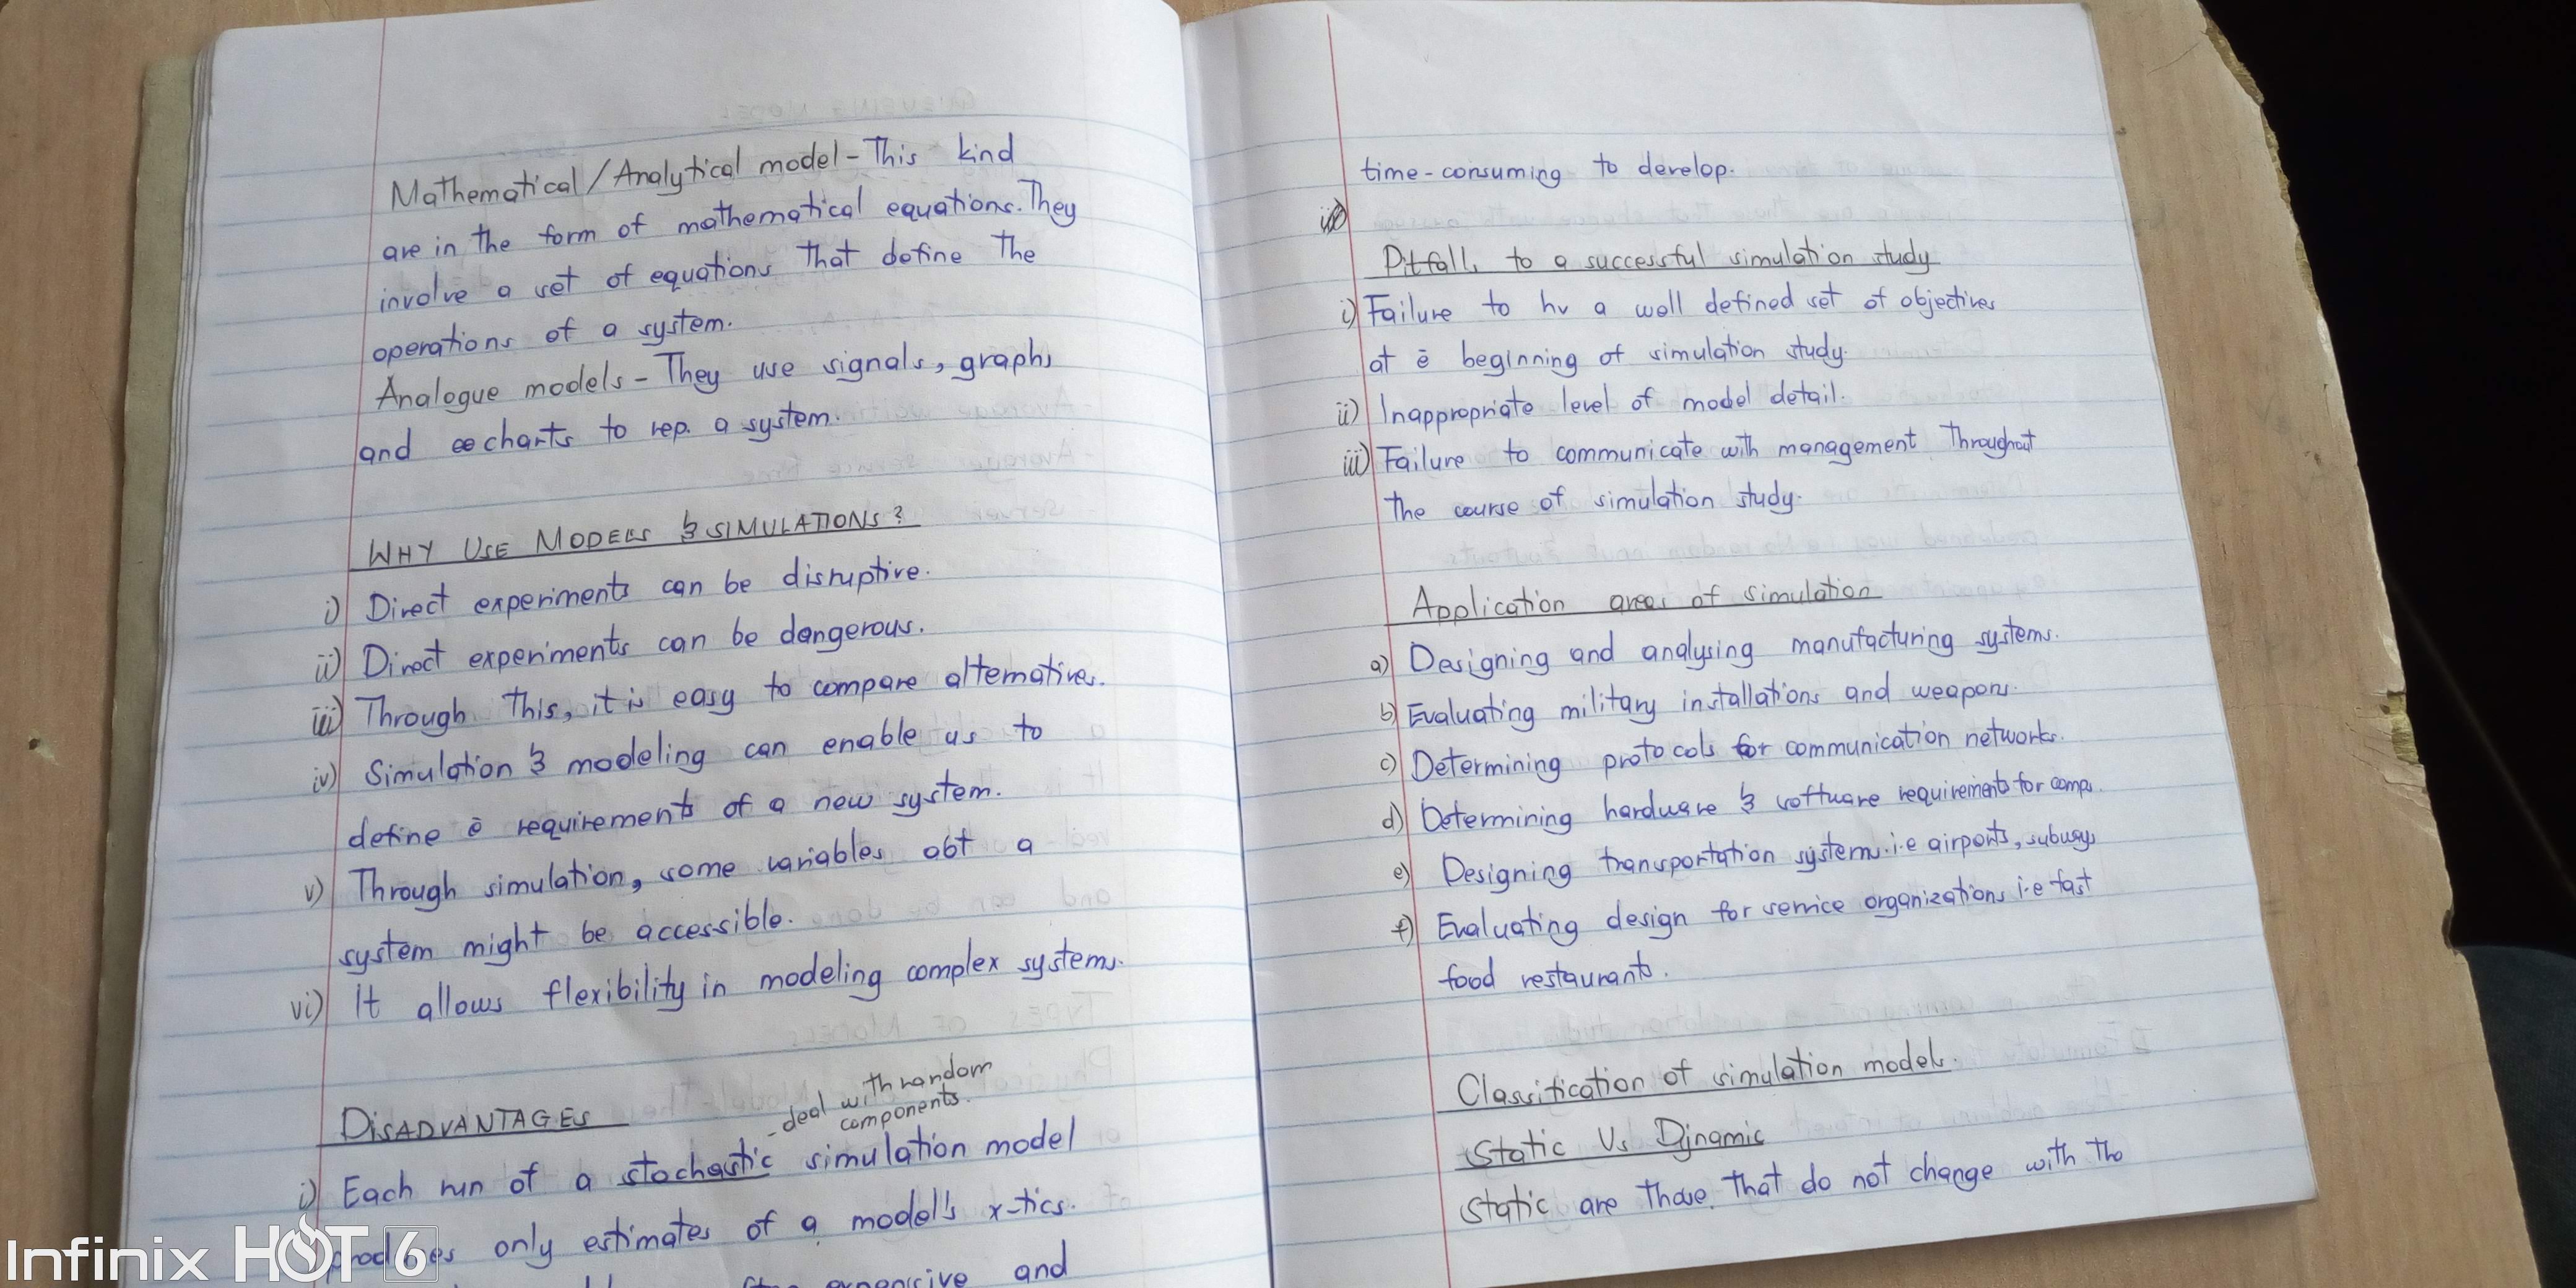 Mathematical/Analytical model - This kind
are in the form of mathematical equations. They
involve a set of equations that define the
operations of a system.
Analogue models - They use signals, graphs
and charts to rep. a system.
WHY USE MODELS & SIMULATIONS?
i) Direct experiments can be disruptive.
ii) Direct experiments can be dangerous.
iii) Through this, it is easy to compare alternatives.
iv) Simulation & modeling can enable us to
define ē requirements of a new system.
v) Through simulation, some variables abt a
system might be accessible.
vi) It allows flexibility in modeling complex systems.
DISADVANTAGES
- deal with random
components.
i) Each run of a stochastic simulation model
produces only estimates of a model's x-tics.
expensive and
time-consuming to develop.
Pitfalls to a successful simulation study
i) Failure to hv a well defined set of objectives
at ē beginning of simulation study.
ii) Inappropriate level of model detail.
iii) Failure to communicate with management throughout
the course of simulation study.
Application areas of simulation
a) Designing and analysing manufacturing systems.
b) Evaluating military installations and weapons.
c) Determining protocols for communication networks.
d) Determining hardware & software requirements for comps.
e) Designing transportation systems i.e airports, subways
f) Evaluating design for service organizations i.e fast
food restaurants.
Classification of simulation models.
Static Vs Dynamic
Static are those that do not change with the
Infinix HOT 6